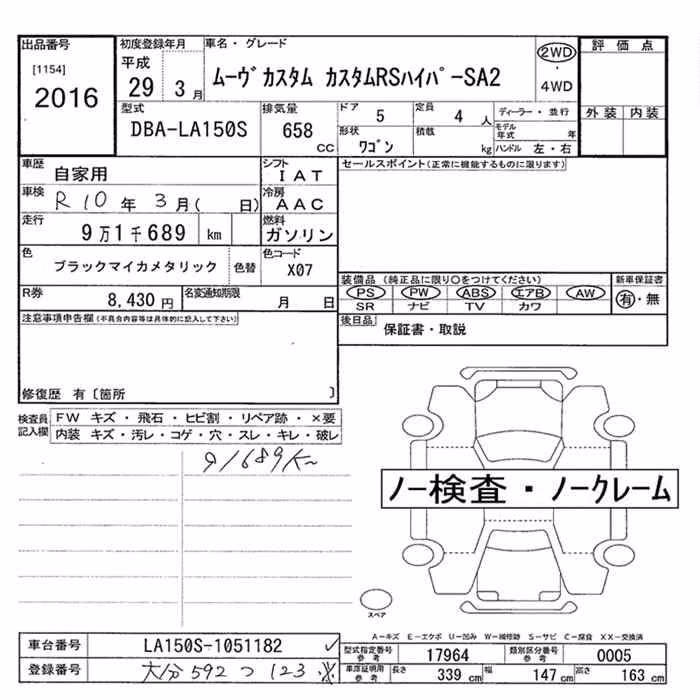 出品番号
[1154]
2016
初度登録年月
平成
29 3 月
車名・グレード
ムーヴカスタム カスタムRSハイパーSA2
2WD
・
4WD
評価点
外装 内装
型式
DBA-LA150S
排気量
658 CC
ドア 5
定員 4 人
ディーラー・並行
モデル年式 年
形状 ワゴン
積載 kg
ハンドル 左・右
車歴 自家用
シフト IAT
車検 R10 年 3 月( 日)
冷房 AAC
走行 9万1千689 km
燃料 ガソリン
色 ブラックマイカメタリック 色替
色コード X07
R券 8,430 円
名変通知期限 月 日
セールスポイント(正常に機能するものに限ります)
装備品 (純正品に限り○をつけてください)
PS PW ABS エアB AW
SR ナビ TV カワ
新車保証書
有・無
後日品 保証書・取説
注意事項申告欄(不具合内容等は具体的に記入して下さい)
修復歴 有〔箇所 〕
検査員記入欄
FW キズ・飛石・ヒビ割・リペア跡・×要
内装 キズ・汚レ・コゲ・穴・スレ・キレ・破レ
91689K
ノー検査・ノークレーム
スペア
A-キズ E-エクボ U-凹み W-補修跡 S-サビ C-腐食 XX-交換済
車台番号 LA150S-1051182
登録番号 大分 592 つ 123
型式指定番号 参考 17964
類別区分番号 参考 0005
車庫証明用 参考 長さ 339 cm 幅 147 cm 高さ 163 cm